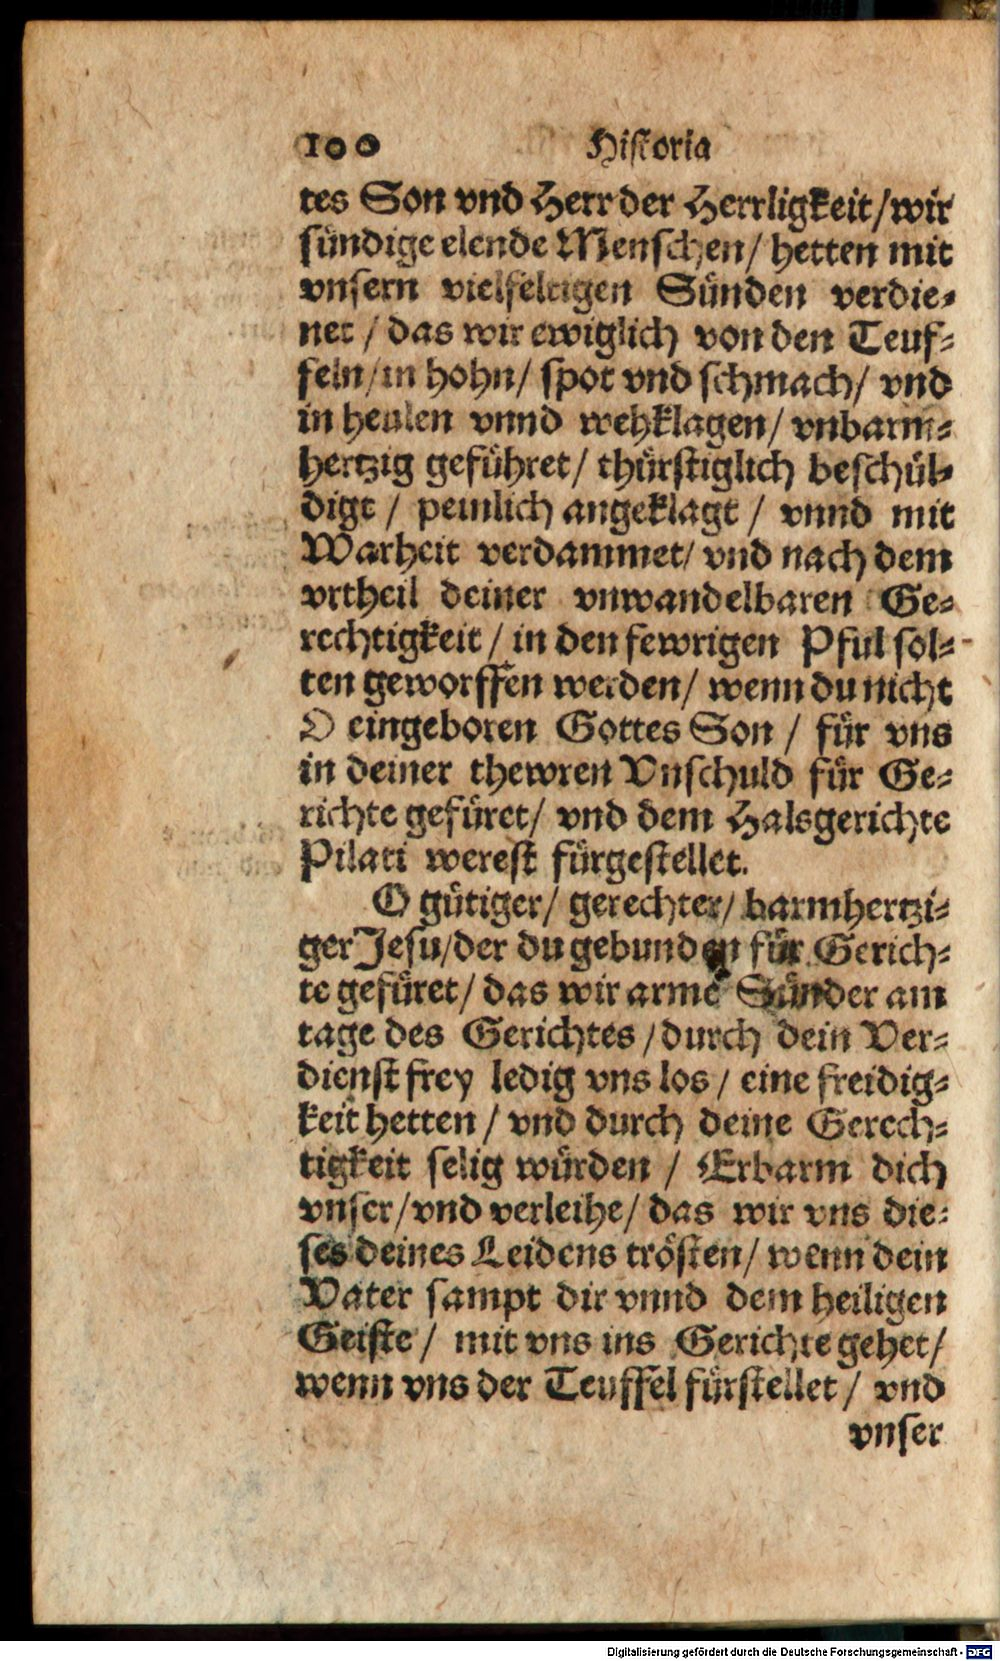 100 Historia
tes Son vnd Herr der Herrligkeit/wir
sündige elende Menschen/ hetten mit
vnsern vielfeltigen Sünden verdie-
net / das wir ewiglich von den Teuf-
feln/in hohn/ spot vnd schmach/ vnd
in heulen vnnd wehklagen/ vnbarm-
hertzig geführet/ thürstiglich beschül-
digt / peinlich angeklagt / vnnd mit
Warheit verdammet/ vnd nach dem
vrtheil deiner vnwandelbaren Ge-
rechtigkeit / in den fewrigen Pful sol-
ten geworffen werden/ wenn du nicht
O eingeboren Gottes Son / für vns
in deiner thewren Vnschuld für Ge-
richte gefüret/ vnd dem Halsgerichte
Pilati werest fürgestellet.
O gütiger/ gerechter/ barmhertzi-
ger Jesu/der du gebunden für Gerich-
te gefüret/ das wir arme Sünder am
tage des Gerichtes /durch dein Ver-
dienst frey ledig vns los / eine freidig-
keit hetten / vnd durch deine Gerech-
tigkeit selig würden / Erbarm dich
vnser/vnd verleihe/ das wir vns die-
ses deines Leidens trösten/ wenn dein
Vater sampt dir vnnd dem heiligen
Geiste / mit vns ins Gerichte gehet/
wenn vns der Teuffel fürstellet / vnd
vnser
Digitalisierung gefördert durch die Deutsche Forschungsgemeinschaft - DFG